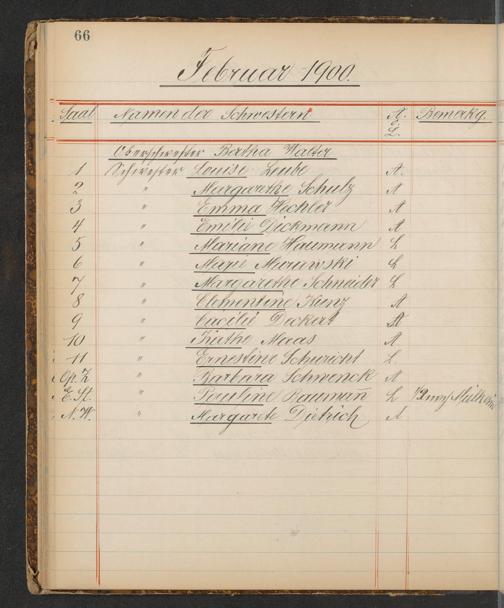 66
Februar 1900.
Saal Namen der Schwestern A. & L. Bemerkg.
Oberschwester Bertha Walter
1 Schwester Louise Leube A.
2 " Margarethe Schulz A
3 " Emma Hechler A
4 " Emilie Dickmann A
5 " Mariane Haumann L
6 " Marie Murawski L
7 " Margarethe Schneider L
8 " Clementine Kunz A
9 " Cäcilie Deckert A
10 " Käthe Maas A
11 " Ernestine Schuricht L
Op. Z " Barbara Schwenck A
E. St. " Pauline Bauman L
N. W. " Margarete Dietrich A